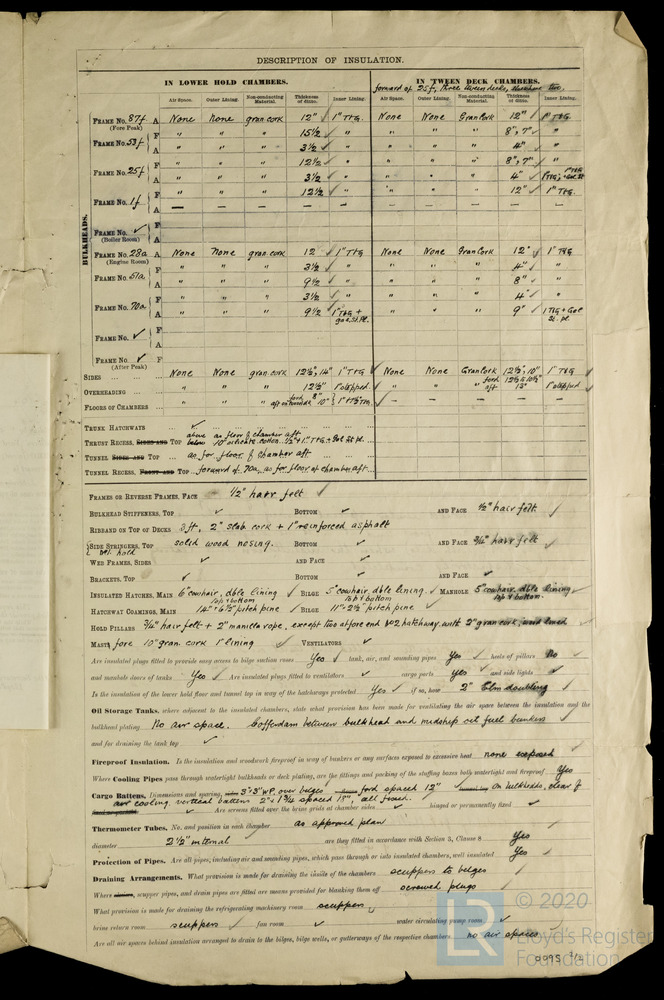 DESCRIPTION OF INSULATION.
IN LOWER HOLD CHAMBERS. IN 'TWEEN DECK CHAMBERS.
forward of 25f, three tween decks,
Air Space. Outer Lining. Non-conducting Material. Thickness of ditto. Inner Lining. Air Space. Outer Lining. Non-conducting Material. Thickness of ditto. Inner Lining.
BULKHEADS.
FRAME NO. 87f A None None gran cork 12" ✓ 1" T+G None None Gran Cork 12" ✓ 1" T+G
(Fore Peak)
F " " " 15½ ✓ " " " " 8", 7" ✓ "
FRAME NO. 53f
A " " " 3½ ✓ " " " " 4" ✓ "
F " " " 12½ ✓ " " " " 8", 7" ✓ "
FRAME NO. 25f
A " " " 3½ ✓ " " " " 4" ✓
F " " " 12½ ✓ " " " " 12" ✓ 1" T+G.
FRAME NO. 1f
A — — — — — — — — — —
FRAME NO. ✓ F
(Boiler Room) A
FRAME NO. 28a A None None gran. cork 12" ✓ 1" T+G None None Gran Cork 12" ✓ 1" T+G
(Engine Room)
F " " " 3½ ✓ " " " " 4" ✓ "
FRAME NO. 51a
A " " " 9½ ✓ " " " " 8" ✓ "
F " " " 3½ ✓ " " " " 4" ✓ "
FRAME NO. 70a
A " " " 9½ ✓ 1" T+G + gal. St. Pl. " " " 9" ✓ 1 T+G + Gal St. pl.
FRAME NO. ✓ F
A
FRAME NO. ✓ F
(After Peak)
SIDES None None gran. cork 12½", 14" 1" T+G None None Gran Cork 12½", 10" 1" T+G
OVERHEADING " " " 12½" 1" clapped " " " 1" clapped
FLOORS OF CHAMBERS " " " — — — — —
TRUNK HATCHWAYS ✓
THRUST RECESS, SIDES AND TOP above as floor of chamber aft below 10" silicate cotton ½" + 1" T+G. + Gal St pl.
TUNNEL SIDES AND TOP as for floor of chamber aft
TUNNEL RECESS, FRONT AND TOP forward of 70a, as for floor of chamber aft.
FRAMES OR REVERSE FRAMES, FACE 1/2" hair felt ✓
BULKHEAD STIFFENERS, TOP ✓ BOTTOM ✓ AND FACE ½" hair felt ✓
RIBBAND ON TOP OF DECKS 3ft, 2" slab cork + 1" reinforced asphalt
SIDE STRINGERS, TOP solid wood nosing. BOTTOM ✓ AND FACE 3/4" hair felt ✓
No 1. hold
WEB FRAMES, SIDES ✓ AND FACE ✓
BRACKETS, TOP ✓ BOTTOM ✓ AND FACE ✓
INSULATED HATCHES, MAIN 6" cowhair, dble lining ✓ top & bottom BILGE 5" cowhair, dble lining. ✓ top & bottom MANHOLE 5" cowhair dble lining ✓ top & bottom.
HATCHWAY COAMINGS, MAIN 14" + 6½" pitch pine ✓ BILGE 11" + 2½" pitch pine ✓
HOLD PILLARS 3/4" hair felt + 2" manilla rope, except two at fore end No 2 hatchway with 2" gran cork, wood lined
MAST fore 10" gran. cork 1" lining ✓ VENTILATORS ✓
Are insulated plugs fitted to provide easy access to bilge suction roses Yes ✓ tank, air, and sounding pipes Yes ✓ heels of pillars No ✓
and manhole doors of tanks Yes ✓ Are insulated plugs fitted to ventilators ✓ cargo ports Yes ✓ and side lights ✓
Is the insulation of the lower hold floor and tunnel top in way of the hatchways protected Yes ✓ if so, how 2" Elm doubling ✓
Oil Storage Tanks, where adjacent to the insulated chambers, state what provision has been made for ventilating the air space between the insulation and the
bulkhead plating No air space. Cofferdam between bulkhead and midship oil fuel bunkers ✓
and for draining the tank top ✓
Fireproof Insulation. Is the insulation and woodwork fireproof in way of bunkers or any surfaces exposed to excessive heat none exposed ✓
Where Cooling Pipes pass through watertight bulkheads or deck plating, are the fittings and packing of the stuffing boxes both watertight and fireproof Yes
Cargo Battens, Dimensions and spacing, 3" x 3" W.P. over bilges ford spaced 12" ✓ on bulkheads, clear of
air cooling, vertical battens 2" x 1¾ spaced 18", all fixed. ✓
✓ Are screens fitted over the brine grids at chamber sides ✓ hinged or permanently fixed ✓
Thermometer Tubes. No. and position in each chamber as approved plan
diameter 2½" internal are they fitted in accordance with Section 3, Clause 8 Yes ✓
Protection of Pipes. Are all pipes, including air and sounding pipes, which pass through or into insulated chambers, well insulated Yes ✓
Draining Arrangements. What provision is made for draining the insides of the chambers scuppers to bilges
Where sluices, scupper pipes, and drain pipes are fitted are means provided for blanking them off screwed plugs ✓
What provision is made for draining the refrigerating machinery room scuppers ✓
brine return room scuppers ✓ fan room ✓ water circulating pump room ✓
Are all air spaces behind insulation arranged to drain to the bilges, bilge wells, or gutterways of the respective chambers no air spaces ✓
© 2020
LR
Lloyd's Register
Foundation
0095 2/2